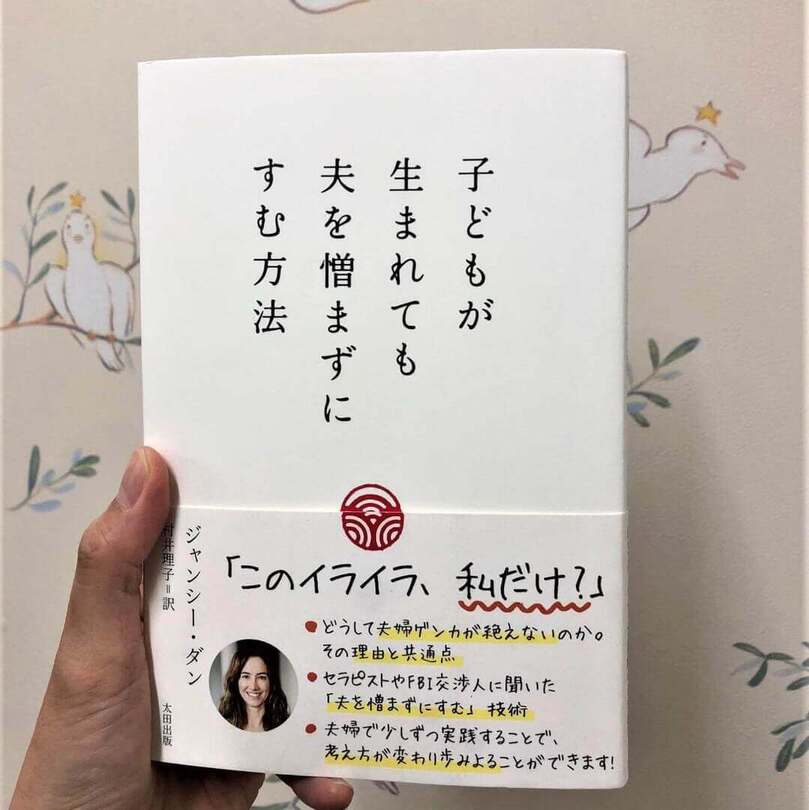 子どもが
生まれても
夫を憎まずに
すむ方法
ジャンシー・ダン
村井理子=訳
太田出版
「このイライラ、私だけ?」
どうして夫婦ゲンカが絶えないのか。
その理由と共通点
セラピストやFBI交渉人に聞いた
「夫を憎まずにすむ」技術
夫婦で少しずつ実践することで、
考え方が変わり歩みよることができます!